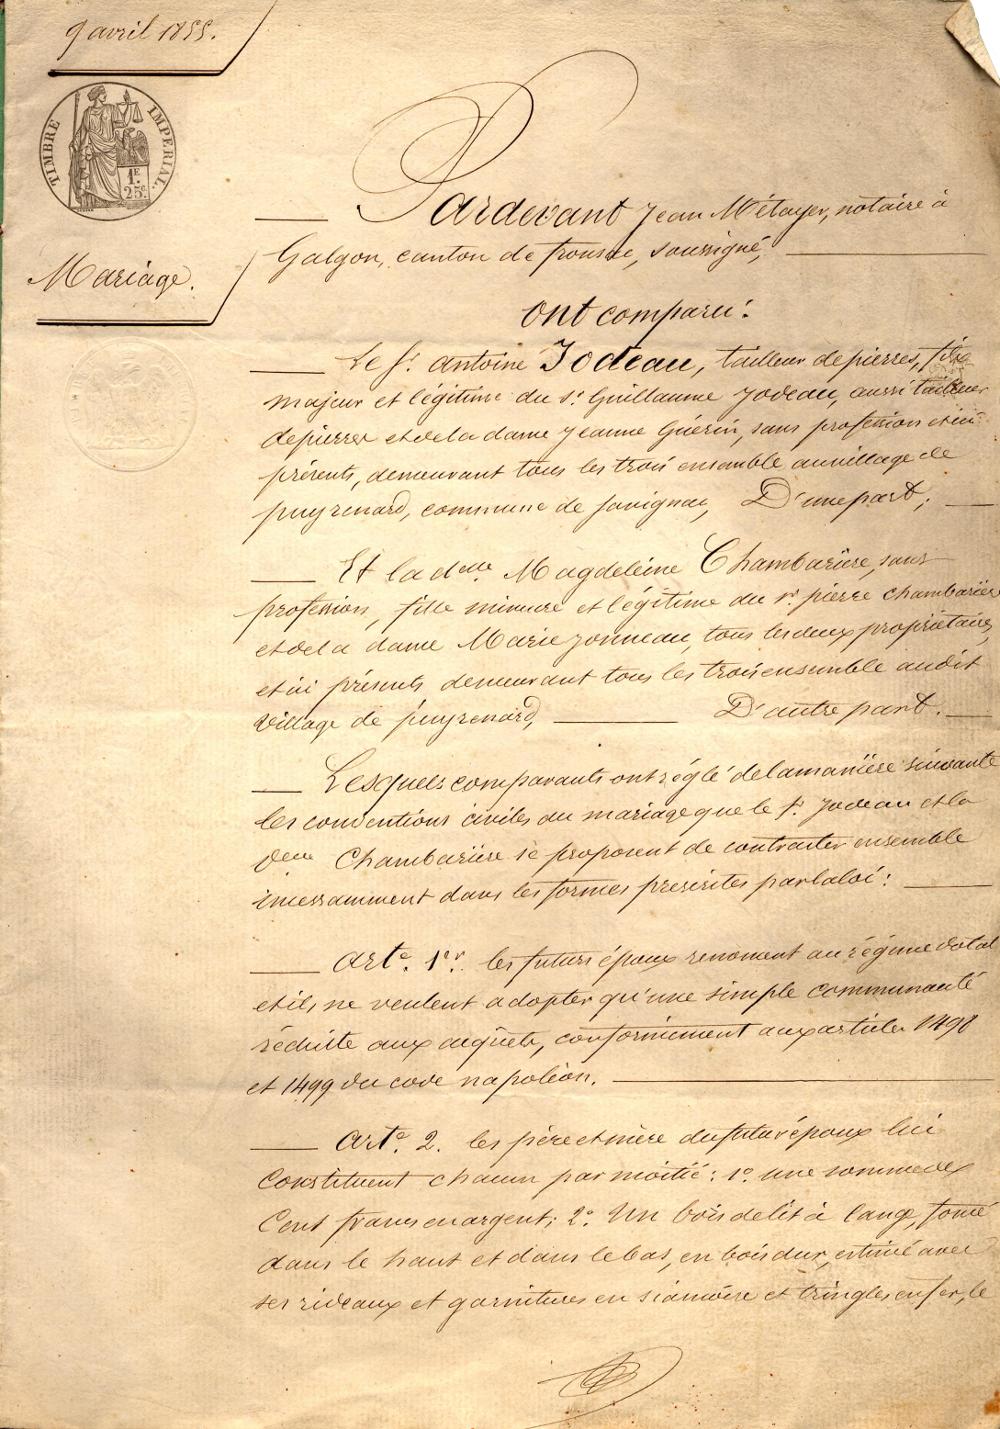 9 avril 1855.
TIMBRE IMPERIAL.
1F. 25c.
Mariage.
Pardevant Jean Métayer, notaire à
Galgon, canton de fronsac, soussigné,
Ont comparu:
Le Sr. antoine Jodeau, tailleur de pierres, fils
majeur et légitime du sr. Guillaume Jodeau, aussi tailleur
de pierres et de la dame Jeanne Guérin, sans profession et ici
présents, demeurant tous les trois ensemble au village de
puyrenard, commune de savignac, D'une part;
Et la delle Magdeleine Chambarière, sans
profession, fille mineure et légitime du sr. pierre chambarière
et de la dame Marie Jonneau, tous les deux propriétaires,
et ici présents, demeurant tous les trois ensemble audit
village de puyrenard, D'autre part.
Lesquels comparants ont réglé de la manière suivante
les conventions civiles du mariage que le sr. Jodeau et la
delle Chambarière se proposent de contracter ensemble
incessamment dans les formes prescrites par la loi:
Arte. 1er. les futurs époux renoncent au régime dotal
et ils ne veulent adopter qu'une simple communauté
réduite aux acquêts, conformément aux articles 1498
et 1499 du code napoléon.
Arte. 2. les père et mère du futur époux lui
constituent chacun par moitié: 1o. une somme de
Cent francs en argent; 2o. Un bois de lit à l'ange, foncé
dans le haut et dans le bas, en bois dur, estimé avec
ses rideaux et garnitures en siamoise et tringles en fer, le